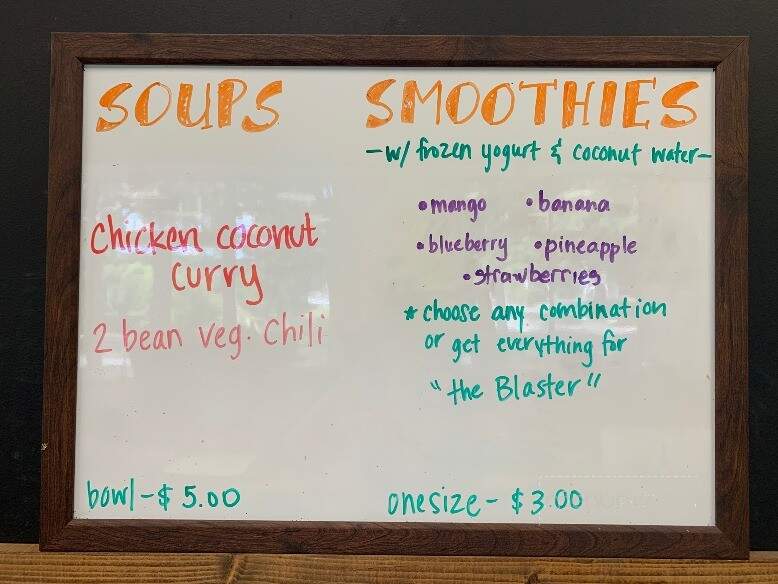 SOUPS
Chicken coconut
curry
2 bean veg. Chili
bowl - $ 5.00
SMOOTHIES
- w/ frozen yogurt & coconut water -
• mango • banana
• blueberry • pineapple
• strawberries
* choose any combination
or get everything for
"the Blaster"
one size - $ 3.00